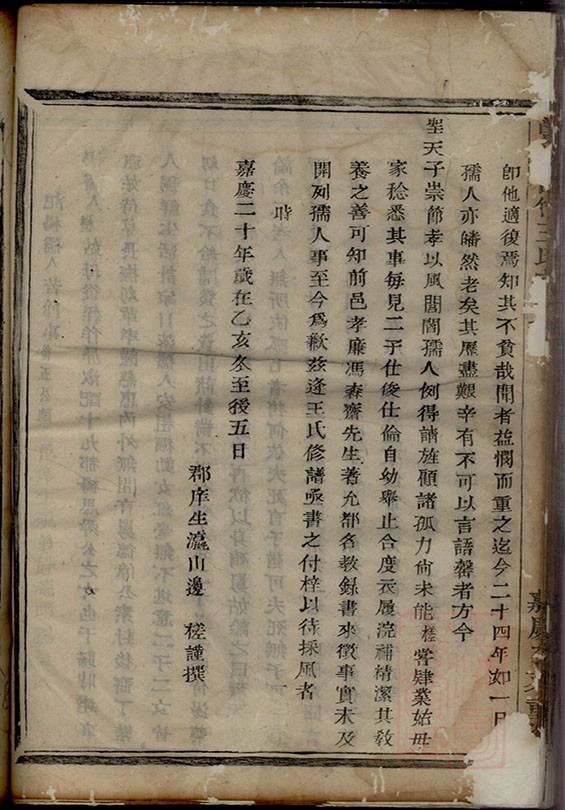 即他適後焉知其不貧哉聞者益憫而重之迄今二十四年如一日
孺人亦皤然老矣其歷盡艱辛有不可以言語罄者方今
聖天子崇節孝以風閭閻孺人例得請旌顧諸孤力尙未能槎嘗肄業姑母
家稔悉其事每見二子仕俊仕倫自幼舉止合度衣履浣補精潔其敎
養之善可知前邑孝廉馮森齋先生著允都名教録書來徵事實未及
開列孺人事至今爲歉兹逢王氏修譜亟書之付梓以待採風者
時
嘉慶二十年歲在乙亥冬至後五日
郡庠生瀛山邊 槎謹撰